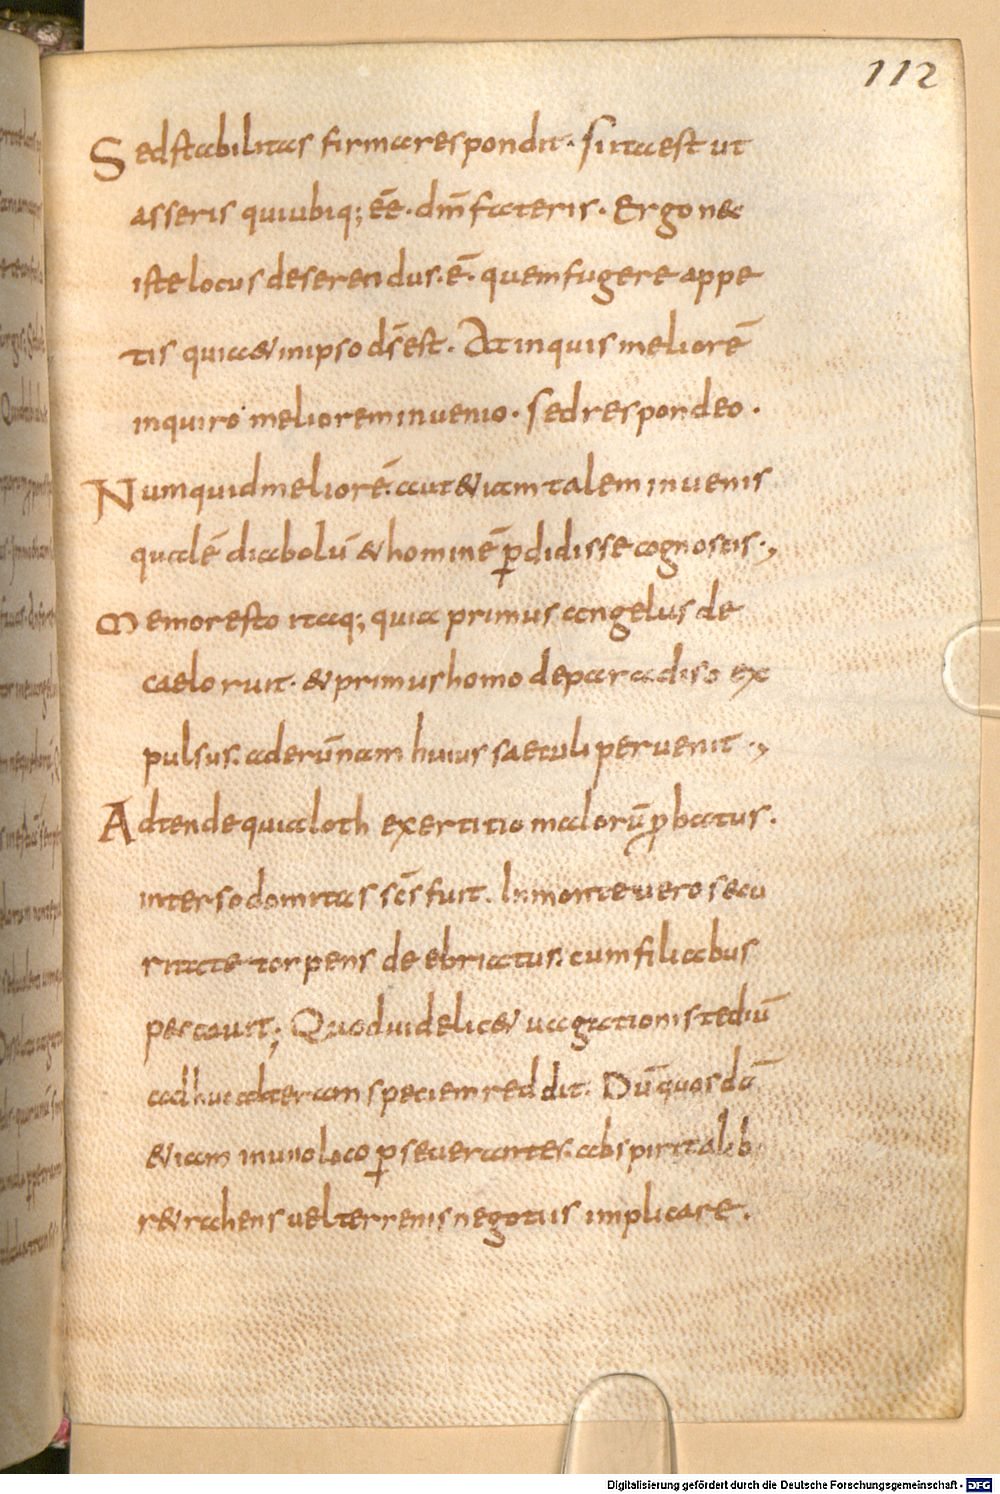 112
Sed stabilitas firma respondit. si ita est ut
asseris qui ubiq; eē. dm̄ fateris. Ergo nec
iste locus deserendus. ē. quem fugere appe
tis quia & in ipso ds̄ est. At inquis meliorē
inquiro meliorem inuenio. sed respondeo.
Numquid meliorē. aut & iam talem inuenis
qualē diabolū & hominē p̄didisse cognoscis.,
Memor esto itaq; quia primus angelus de
caelo ruit. & primus homo de paradiso ex
pulsus. ad erūnam huius saeculi peruenit.,
Adtende quia loth exertitio malorū ꝓbatus.
inter sodomitas scs̄ fuit. In monte uero secu
ritate torpens de ebriatus. cum filiabus
peccauit; Quod uidelic& uagationis tediū
adhuc alteram speciem reddit. Dū quosdā
& iam in uno loco p̄seuerantes. ab spiritalib
r&rahens uel terrenis negotiis implicare.
Digitalisierung gefördert durch die Deutsche Forschungsgemeinschaft - DFG